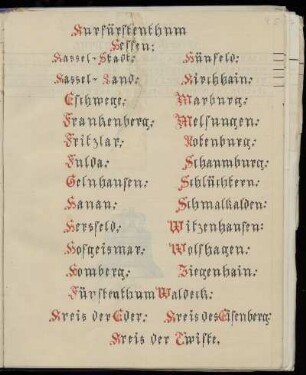 Kurfürstenthum
Hessen:
Kassel-Stadt: Hünfeld:
Kassel-Land: Kirchhain:
Eschwege: Marburg:
Frankenberg: Melsungen:
Fritzlar: Rotenburg:
Fulda: Schaumburg:
Gelnhausen: Schlüchtern:
Hanau: Schmalkalden:
Hersfeld: Witzenhausen:
Hofgeismar: Wolfhagen:
Homberg: Ziegenhain:
Fürstenthum Waldeck:
Kreis der Eder: Kreis des Eisenberg:
Kreis der Twiste.